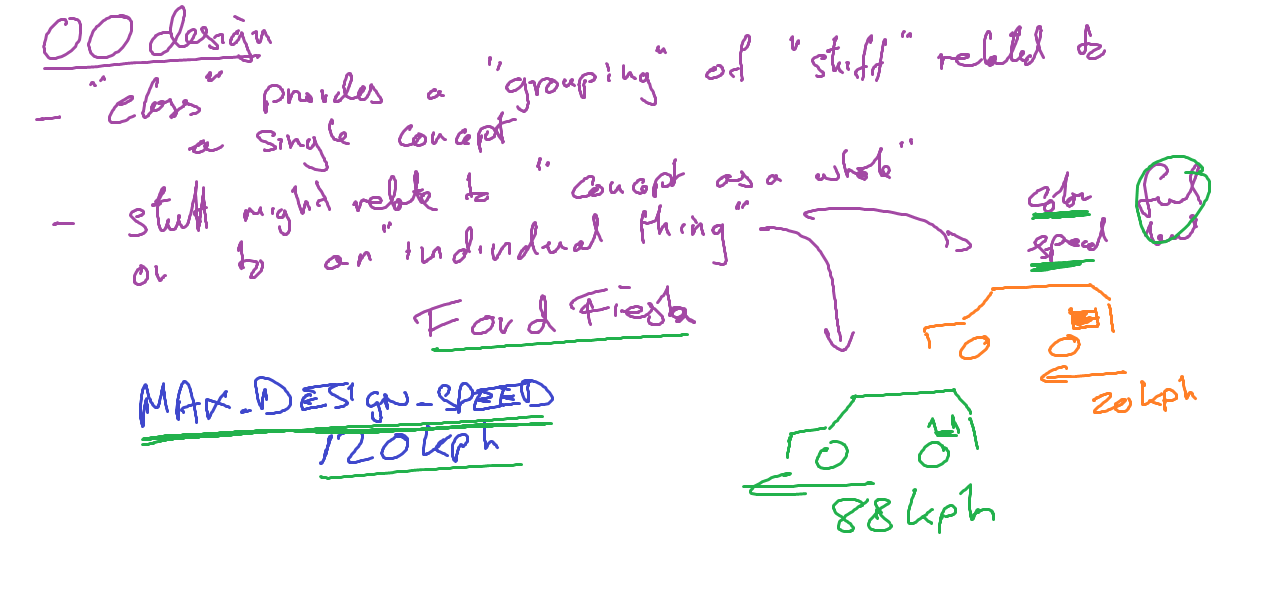 OO design
- "Class" provides a "grouping" of "stuff" related to
a single concept
- stuff might relate to "concept as a whole"
or to an "individual thing"
colour fuel
speed level
Ford Fiesta
MAX_DESIGN_SPEED
120kph
20kph
88kph